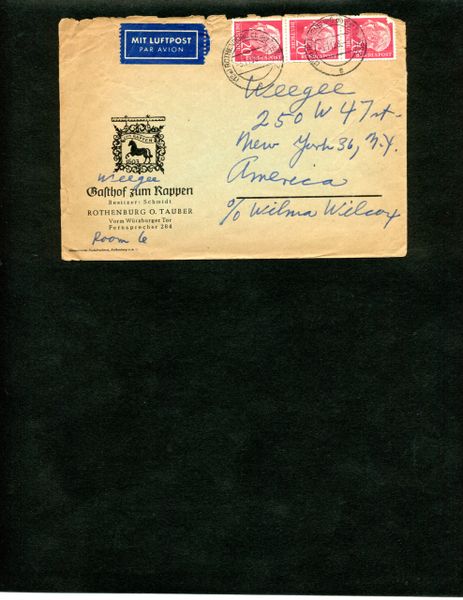 MIT LUFTPOST
PAR AVION
20
20
20
Weegee
250 W 47 st.
New York 36, N.Y.
America
c/o Wilma Wilcox
Weegee
Gasthof zum Rappen
Besitzer: Schmidt
ROTHENBURG O. TAUBER
Vorm Würzburger Tor
Fernsprecher 284
Room 6